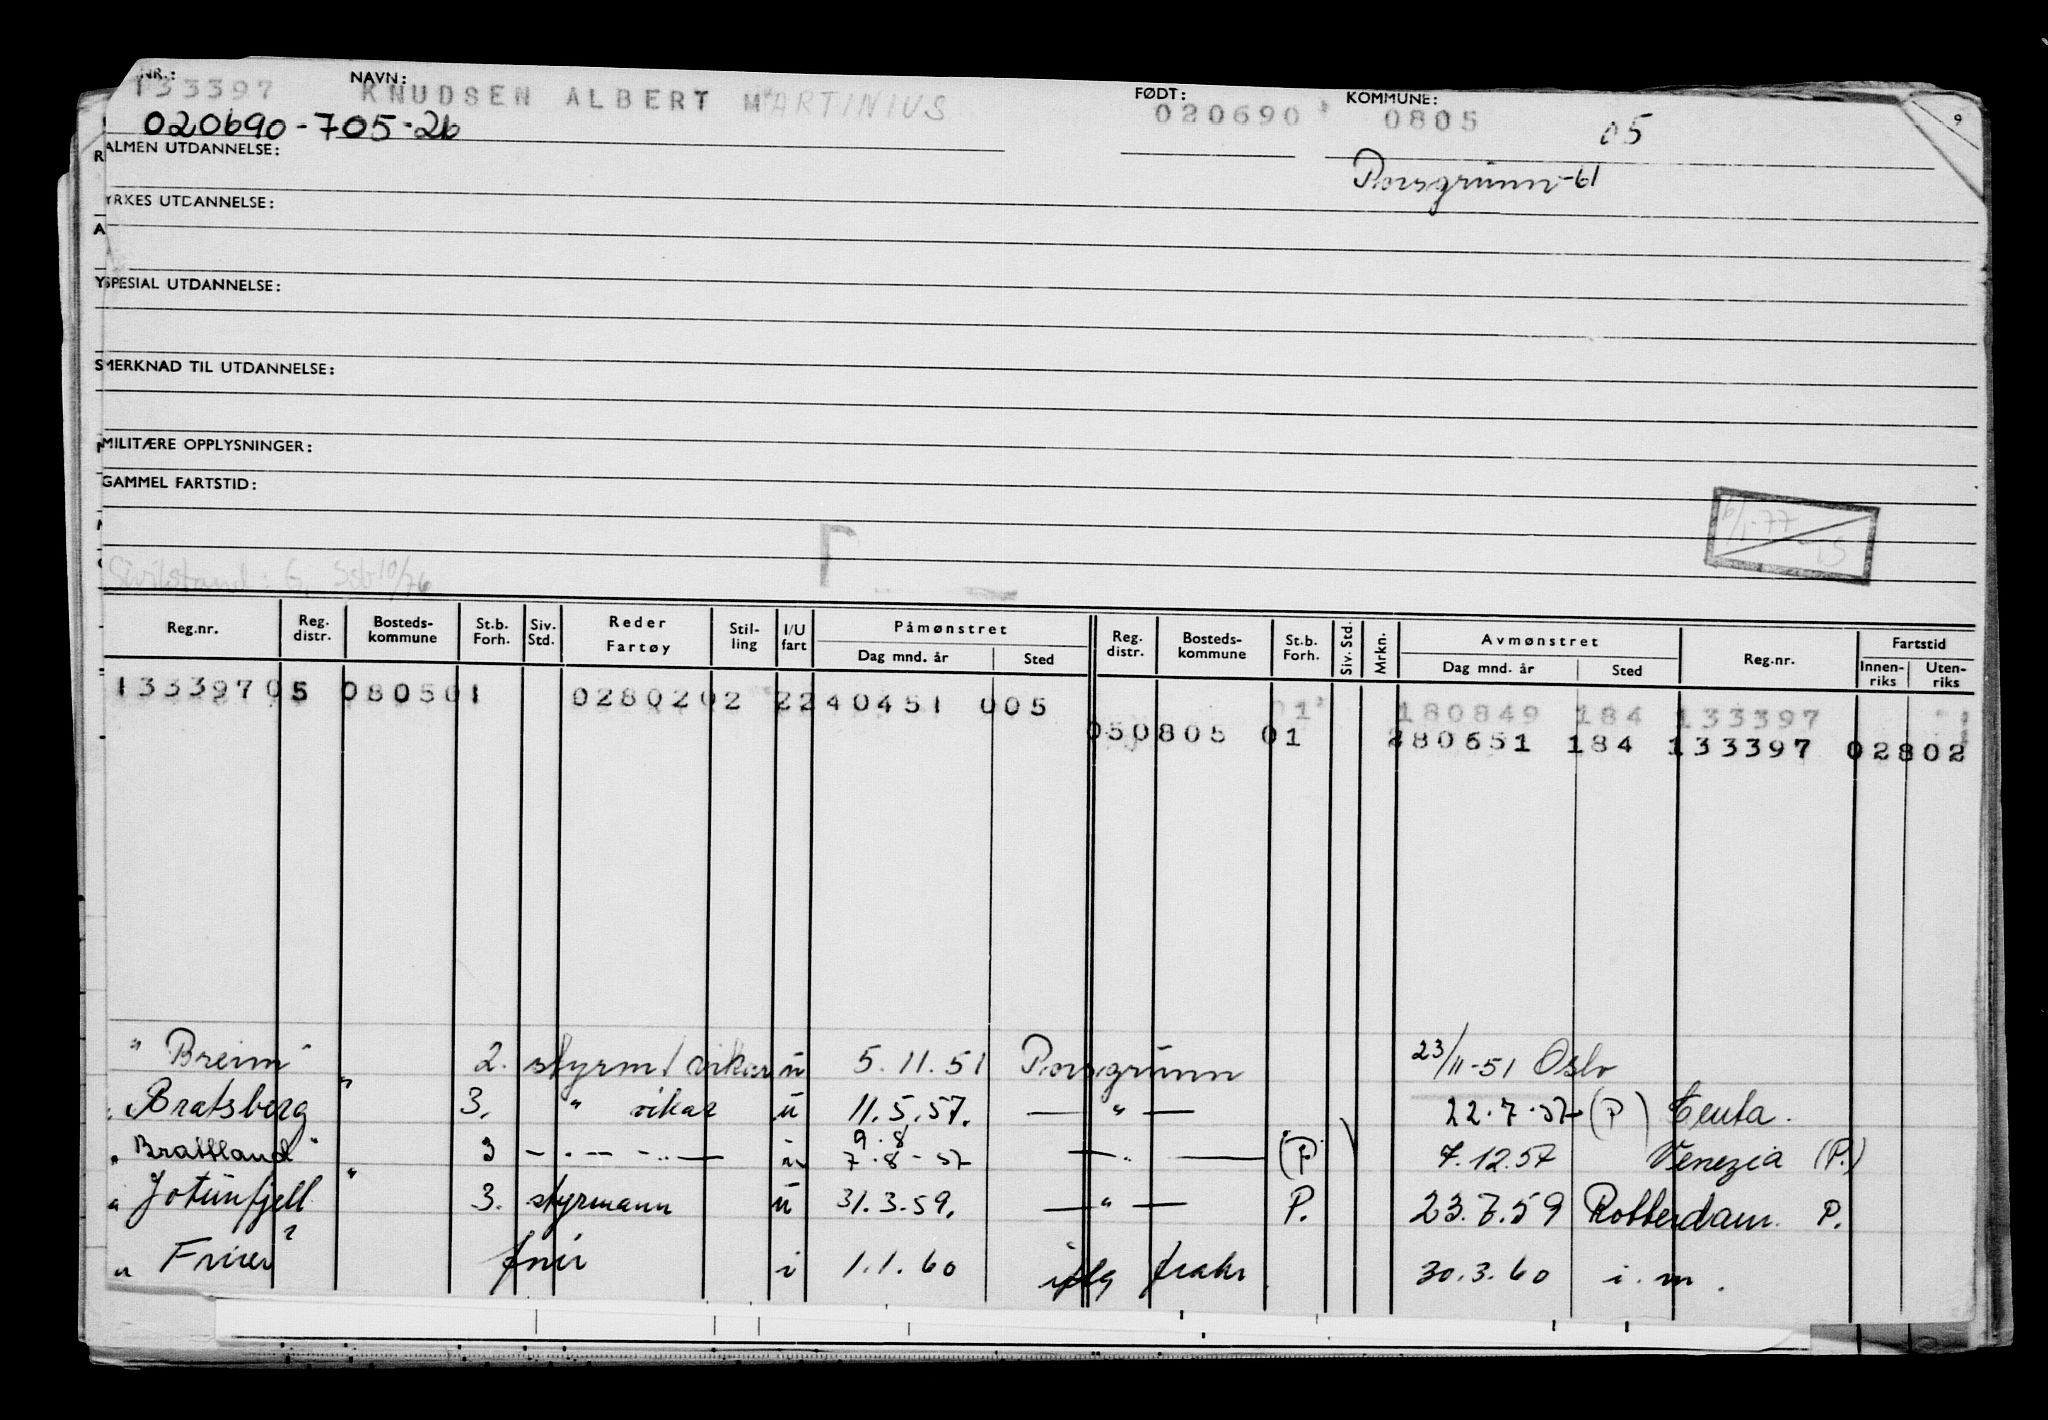 NR.: NAVN: FØDT: KOMMUNE:
133397 KNUDSEN ALBERT MARTINIUS 020690 0805 05 9
020690-705-26
ALMEN UTDANNELSE:
Porsgrunn-61
YRKES UTDANNELSE:
SPESIAL UTDANNELSE:
MERKNAD TIL UTDANNELSE:
MILITÆRE OPPLYSNINGER:
GAMMEL FARTSTID:
6/1-77
Sivilstand: G. 10/76
Reg.nr. Reg. distr. Bosteds-kommune St.b. Forh. Siv. Std. Reder Fartøy Stil-ling I/U fart Påmønstret Dag mnd. år Sted Reg. distr. Bosteds-kommune St.b. Forh. Siv. Std. Mrkn. Avmønstret Dag mnd. år Sted Reg.nr. Fartstid Innen-riks Uten-riks
13339705 080501 0280202 2240451 005
01 180849 184 133397
050805 01 280651 184 133397 02802
"Breim" 2. styrm/vikar u 5.11.51 Porsgrunn 23/11-51 Oslo
"Bratsberg" 3. " vikar u 11.5.57. — " — 22.7.57 (P) Ceuta.
9.8
"Brattland" 3 — . — — .. — u 7.8-57 — .. — (P) 7.12.57 Venezia (P.)
"Jotunfjell" 3. styrmann u 31.3.59. — " — P. 23.7.59 Rotterdam. P.
"Frier" i 1.1.60 iflg 30.3.60 i.m.